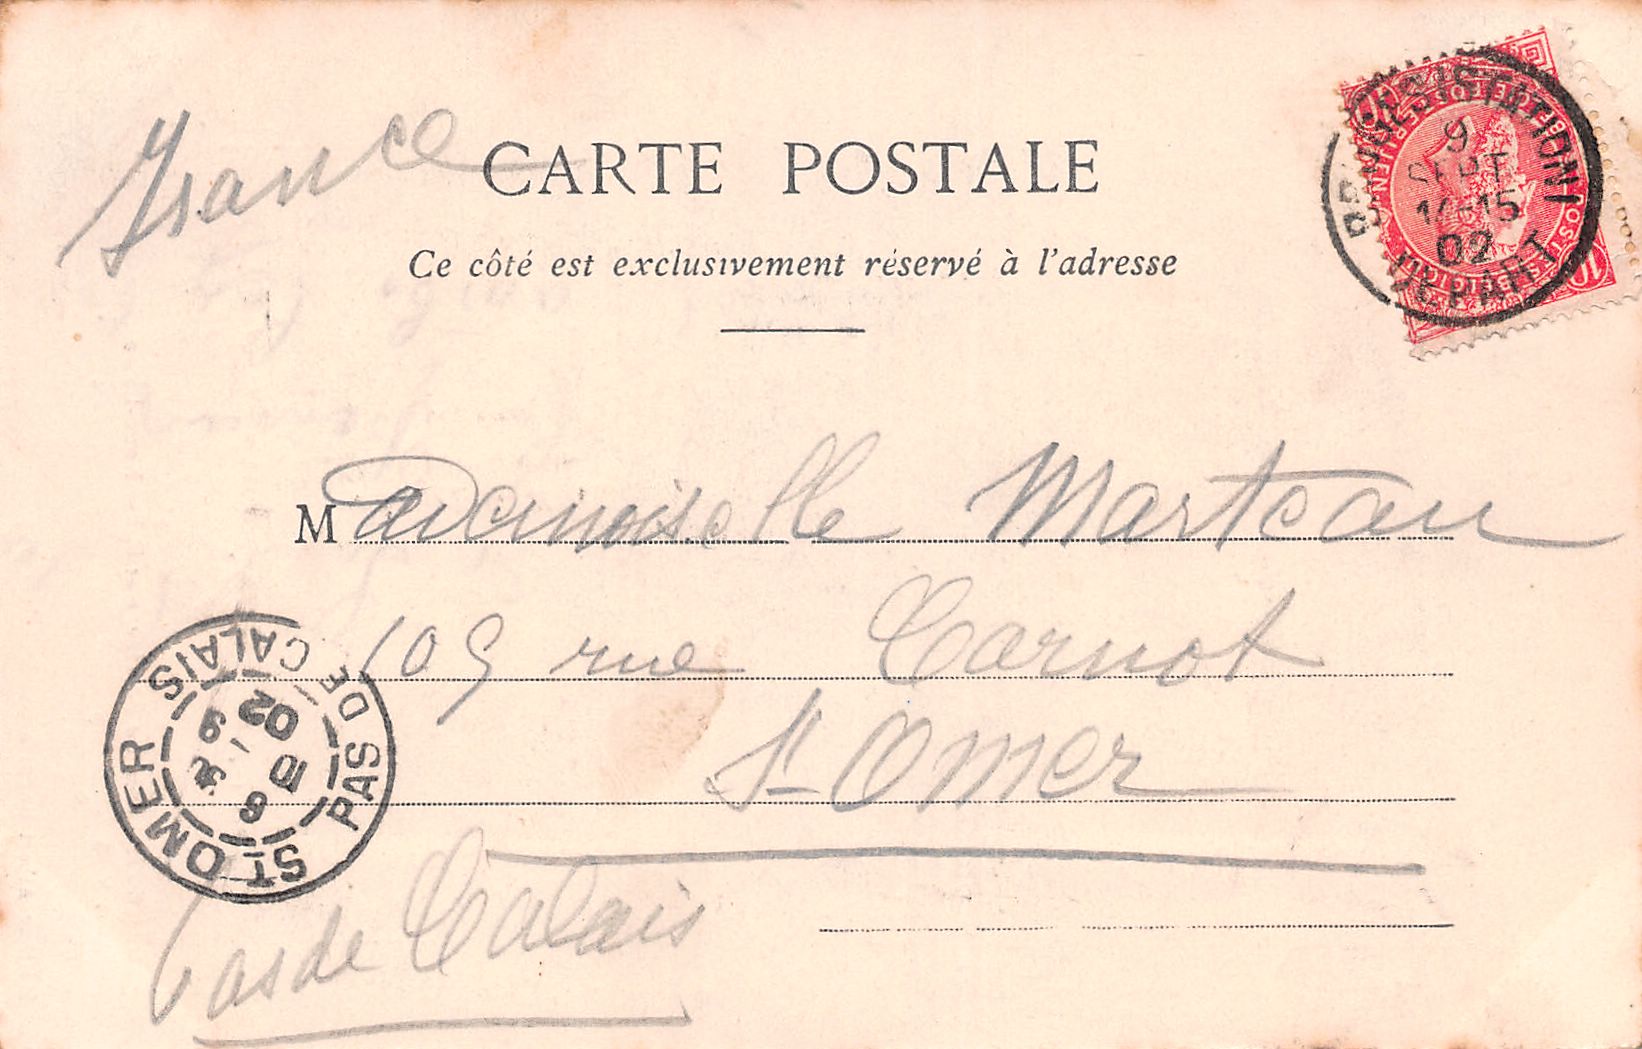 France
CARTE POSTALE
Ce côté est exclusivement réservé à l'adresse
BRUGES (STATION)
9
SEPT
14-15
02
DEPART
10
10
Mademoiselle Marteau
109 rue Carnot
St Omer
Pas de Calais
ST OMER
PAS DE CALAIS
6
10
9
02